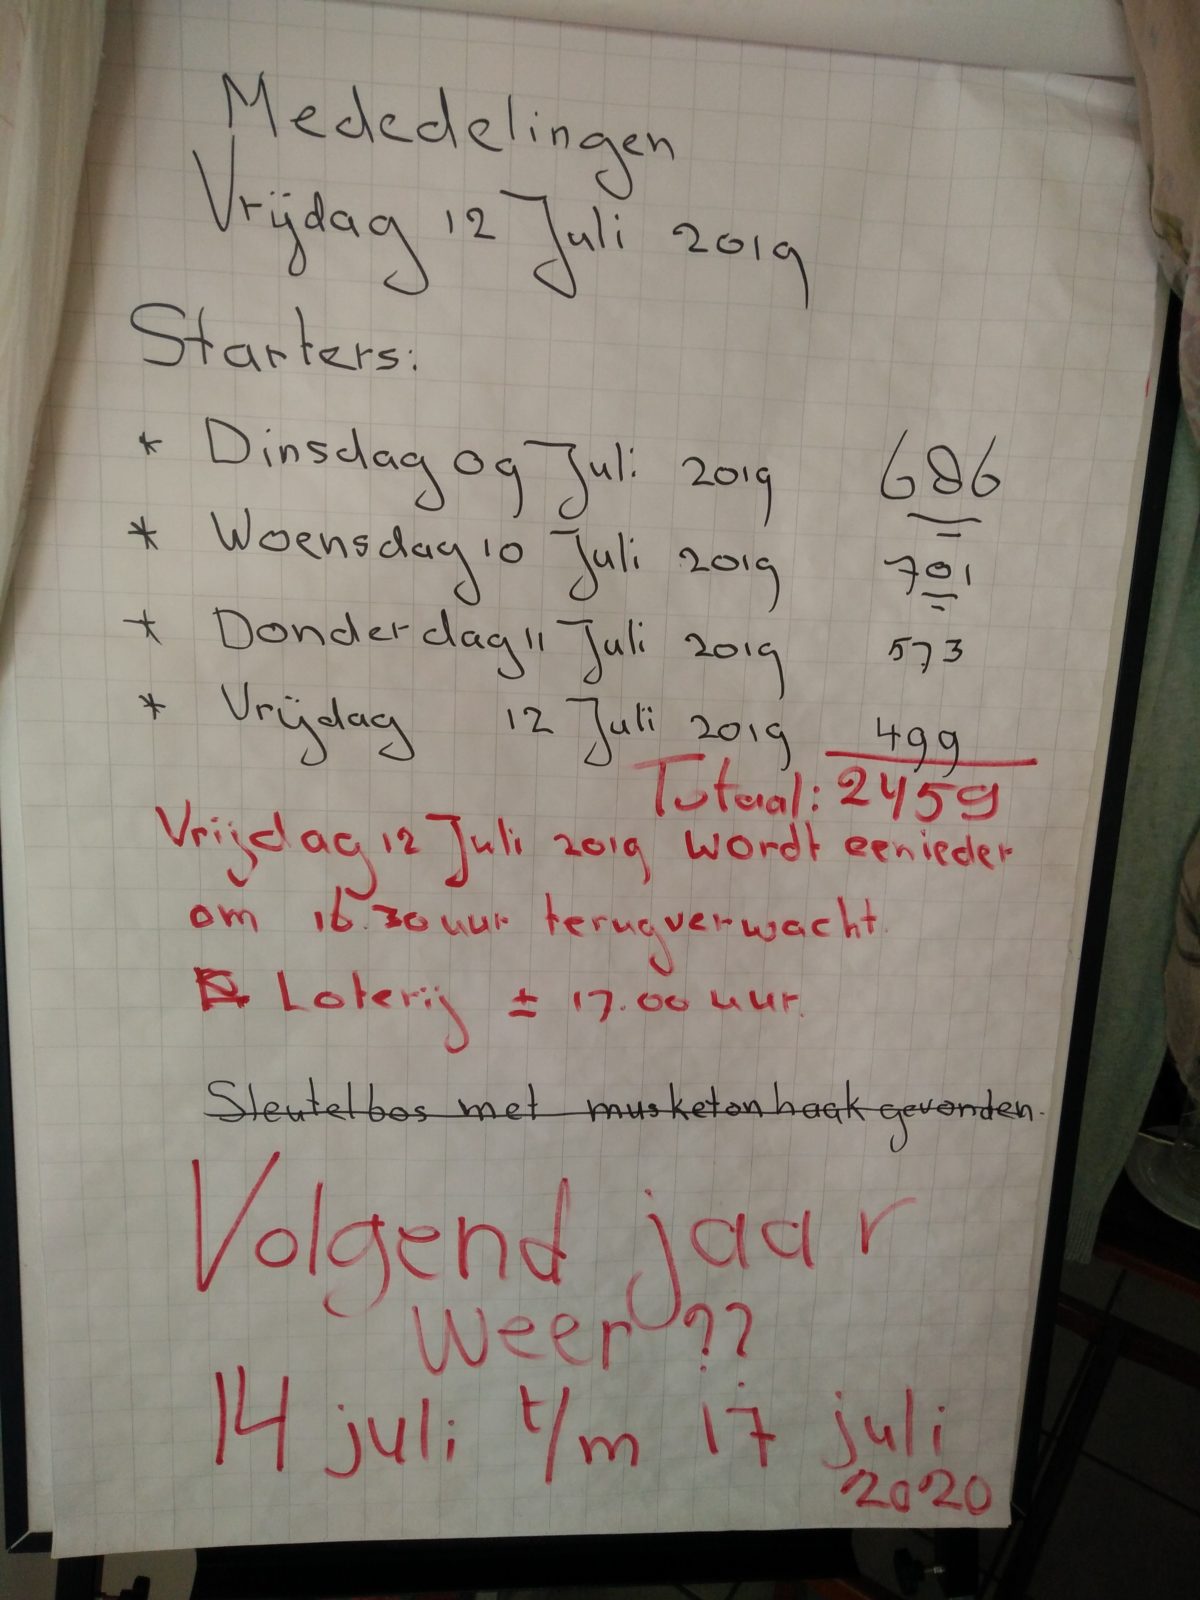 Mededelingen
Vrijdag 12 Juli 2019
Starters:
* Dinsdag 09 Juli 2019 686
* Woensdag 10 Juli 2019 701
* Donderdag 11 Juli 2019 573
* Vrijdag 12 Juli 2019 499
Totaal: 2459
Vrijdag 12 Juli 2019 wordt eenieder
om 16.30 uur terugverwacht.
Loterij ± 17.00 uur.
Sleutelbos met musketonhaak gevonden.
Volgend jaar
weer ??
14 juli t/m 17 juli
2020